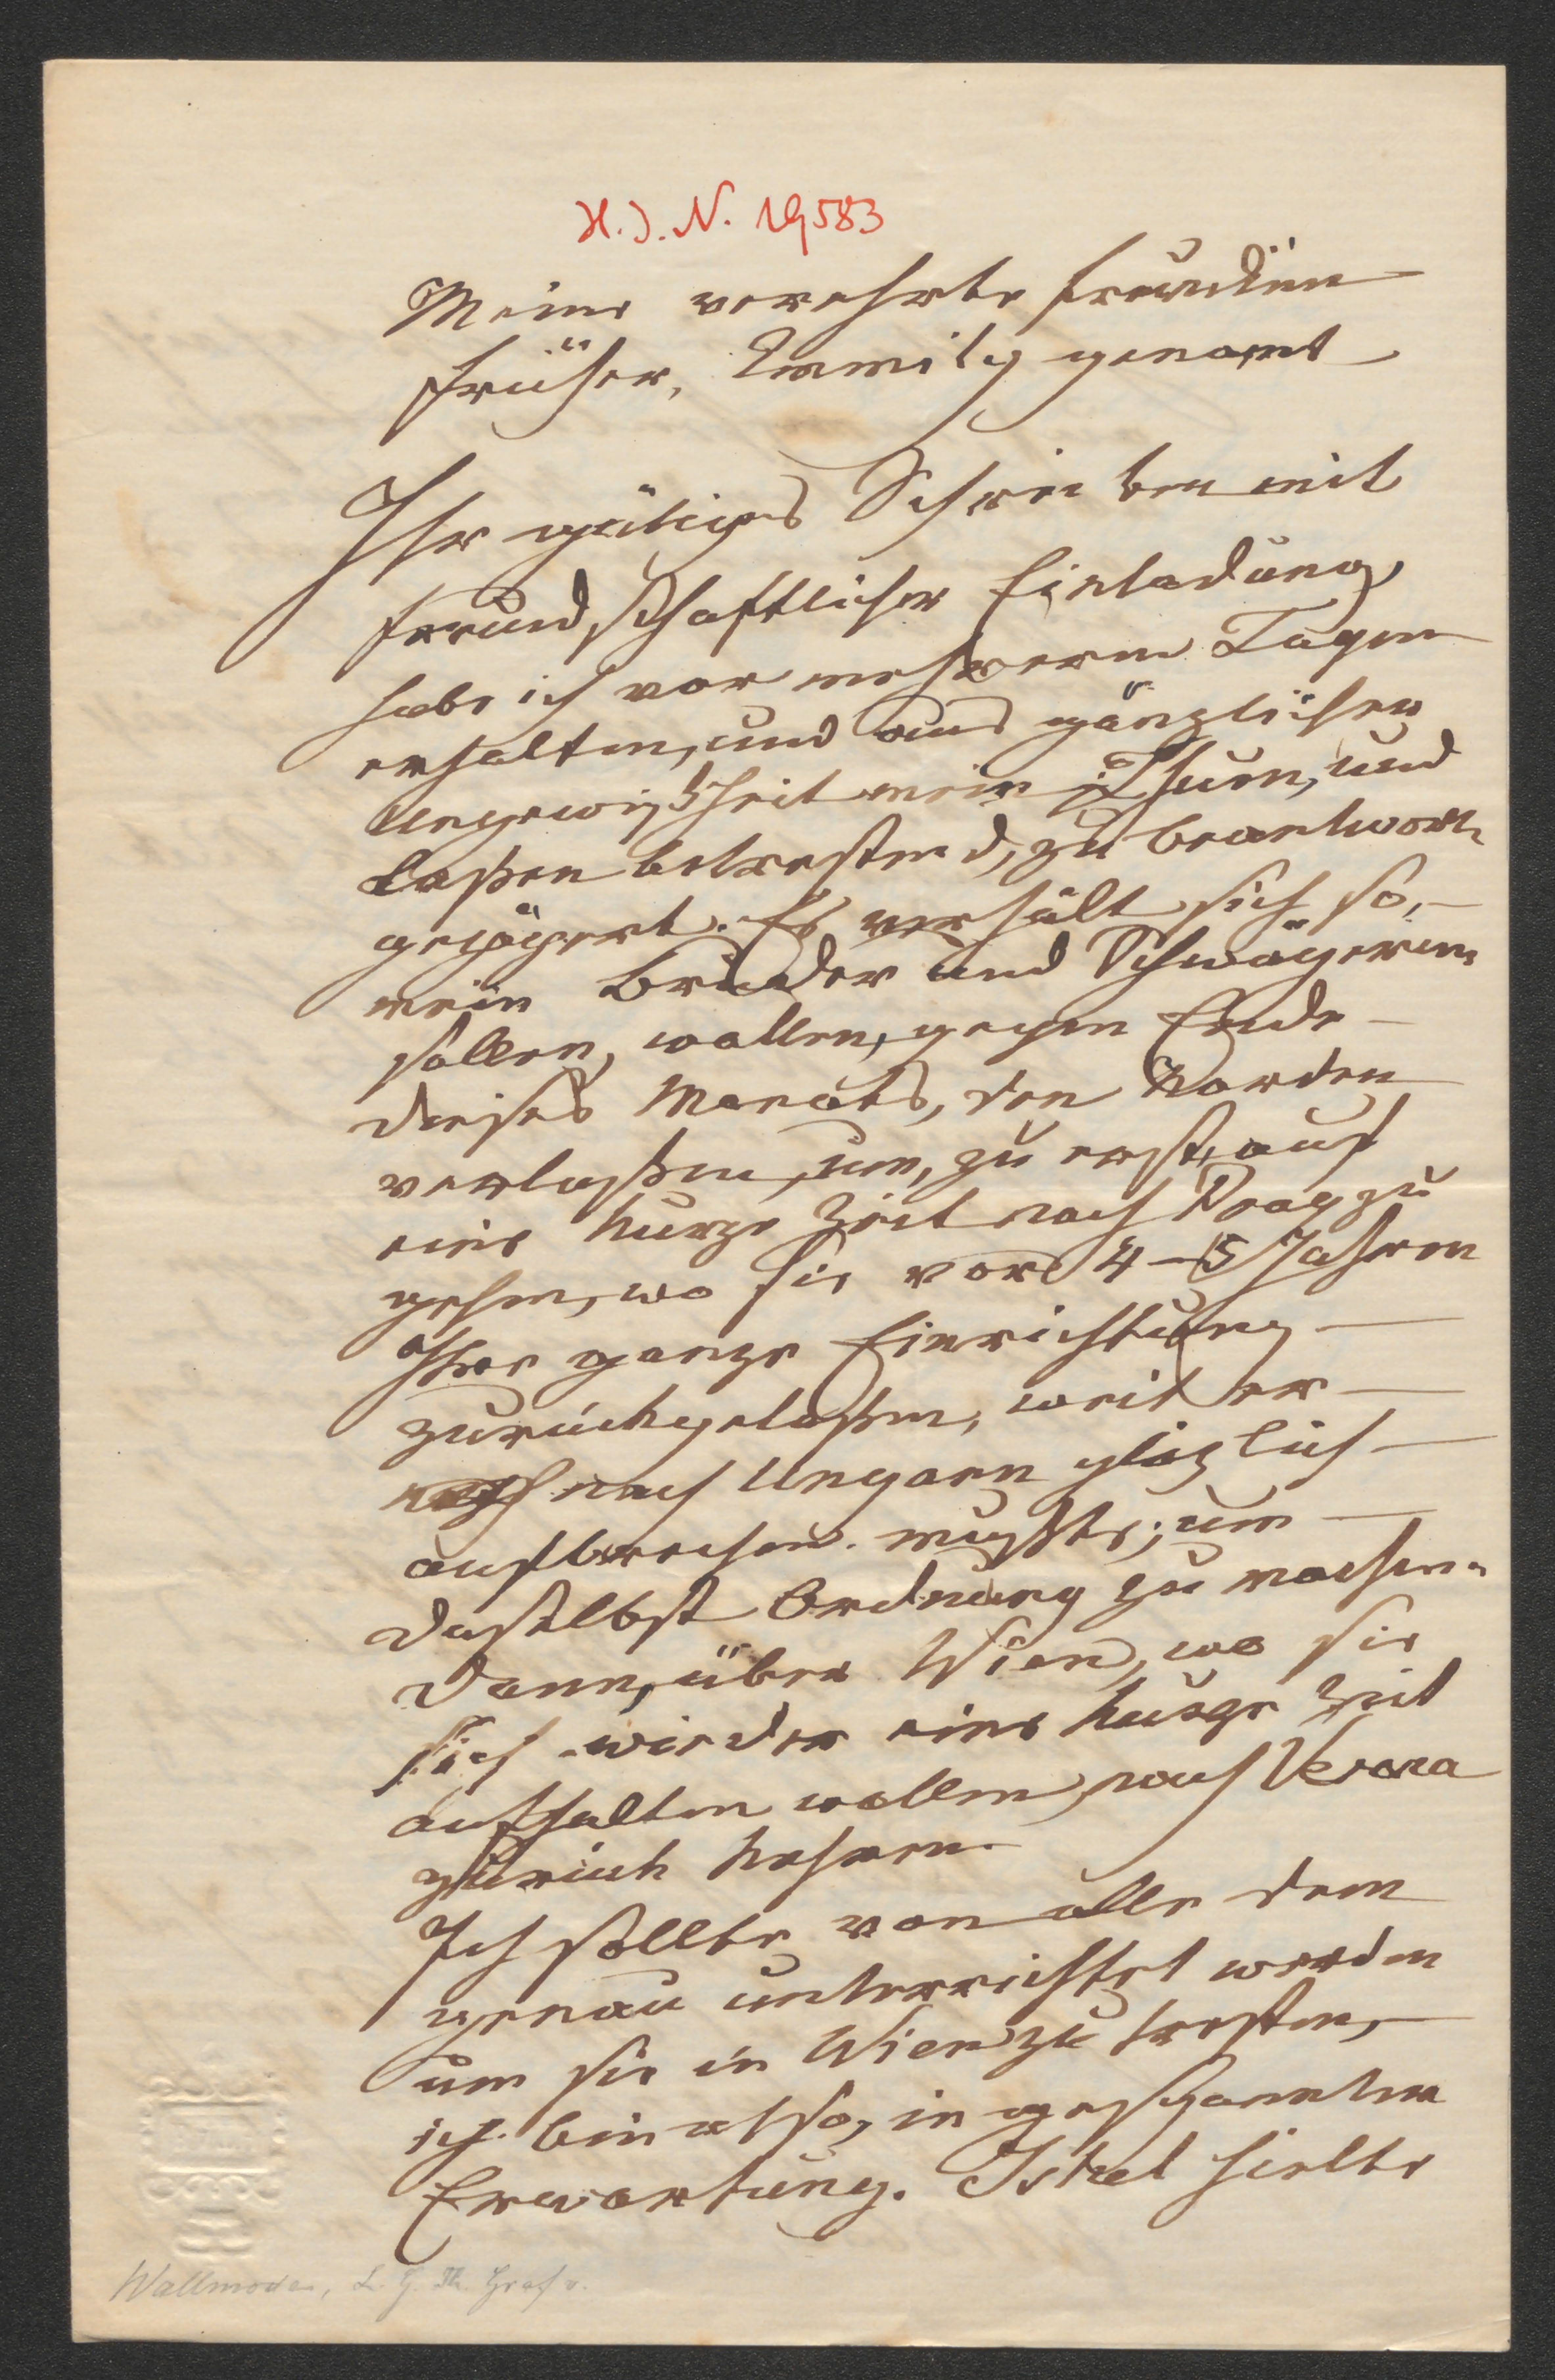 H.I.N. 19583
Meine verehrte Freundinn
früher, Emmily genant
Ihr gütiges Schreiben mit
freundschaftlicher Einladung,
habe ich vor mehreren Tagen
erhalten, und aus gänzlicher
Ungewißheit mein Thun, und
Laßen betreffend, zu beantworten
gezögert. Es verhält sich so,
mein Bruder und Schwägerinn
sollen, wollen, gegen Ende
dieses Monats, den Norden
verlaßen, um, zu erst, auf
eine kurze Zeit nach Prag zu
gehen, wo sie vor 4-5 Jahren
Ihre ganze Einrichtung
zurückgelaßen, weil er
nach Ungarn plözlich
aufbrechen mußte; um
daselbst Ordnung zu machen.
Dann, über Wien, wo sie
sich wieder eine kurze Zeit
aufhalten wollen, nach Verona
zurück kehren.
Ich sollte von alle dem
genau unterrichtet werden
um sie in Wien zu treffen,
ich bin also, in gespannter
Erwartung. Ischel hielte
Wallmoden, L. G. Th. Graf v.